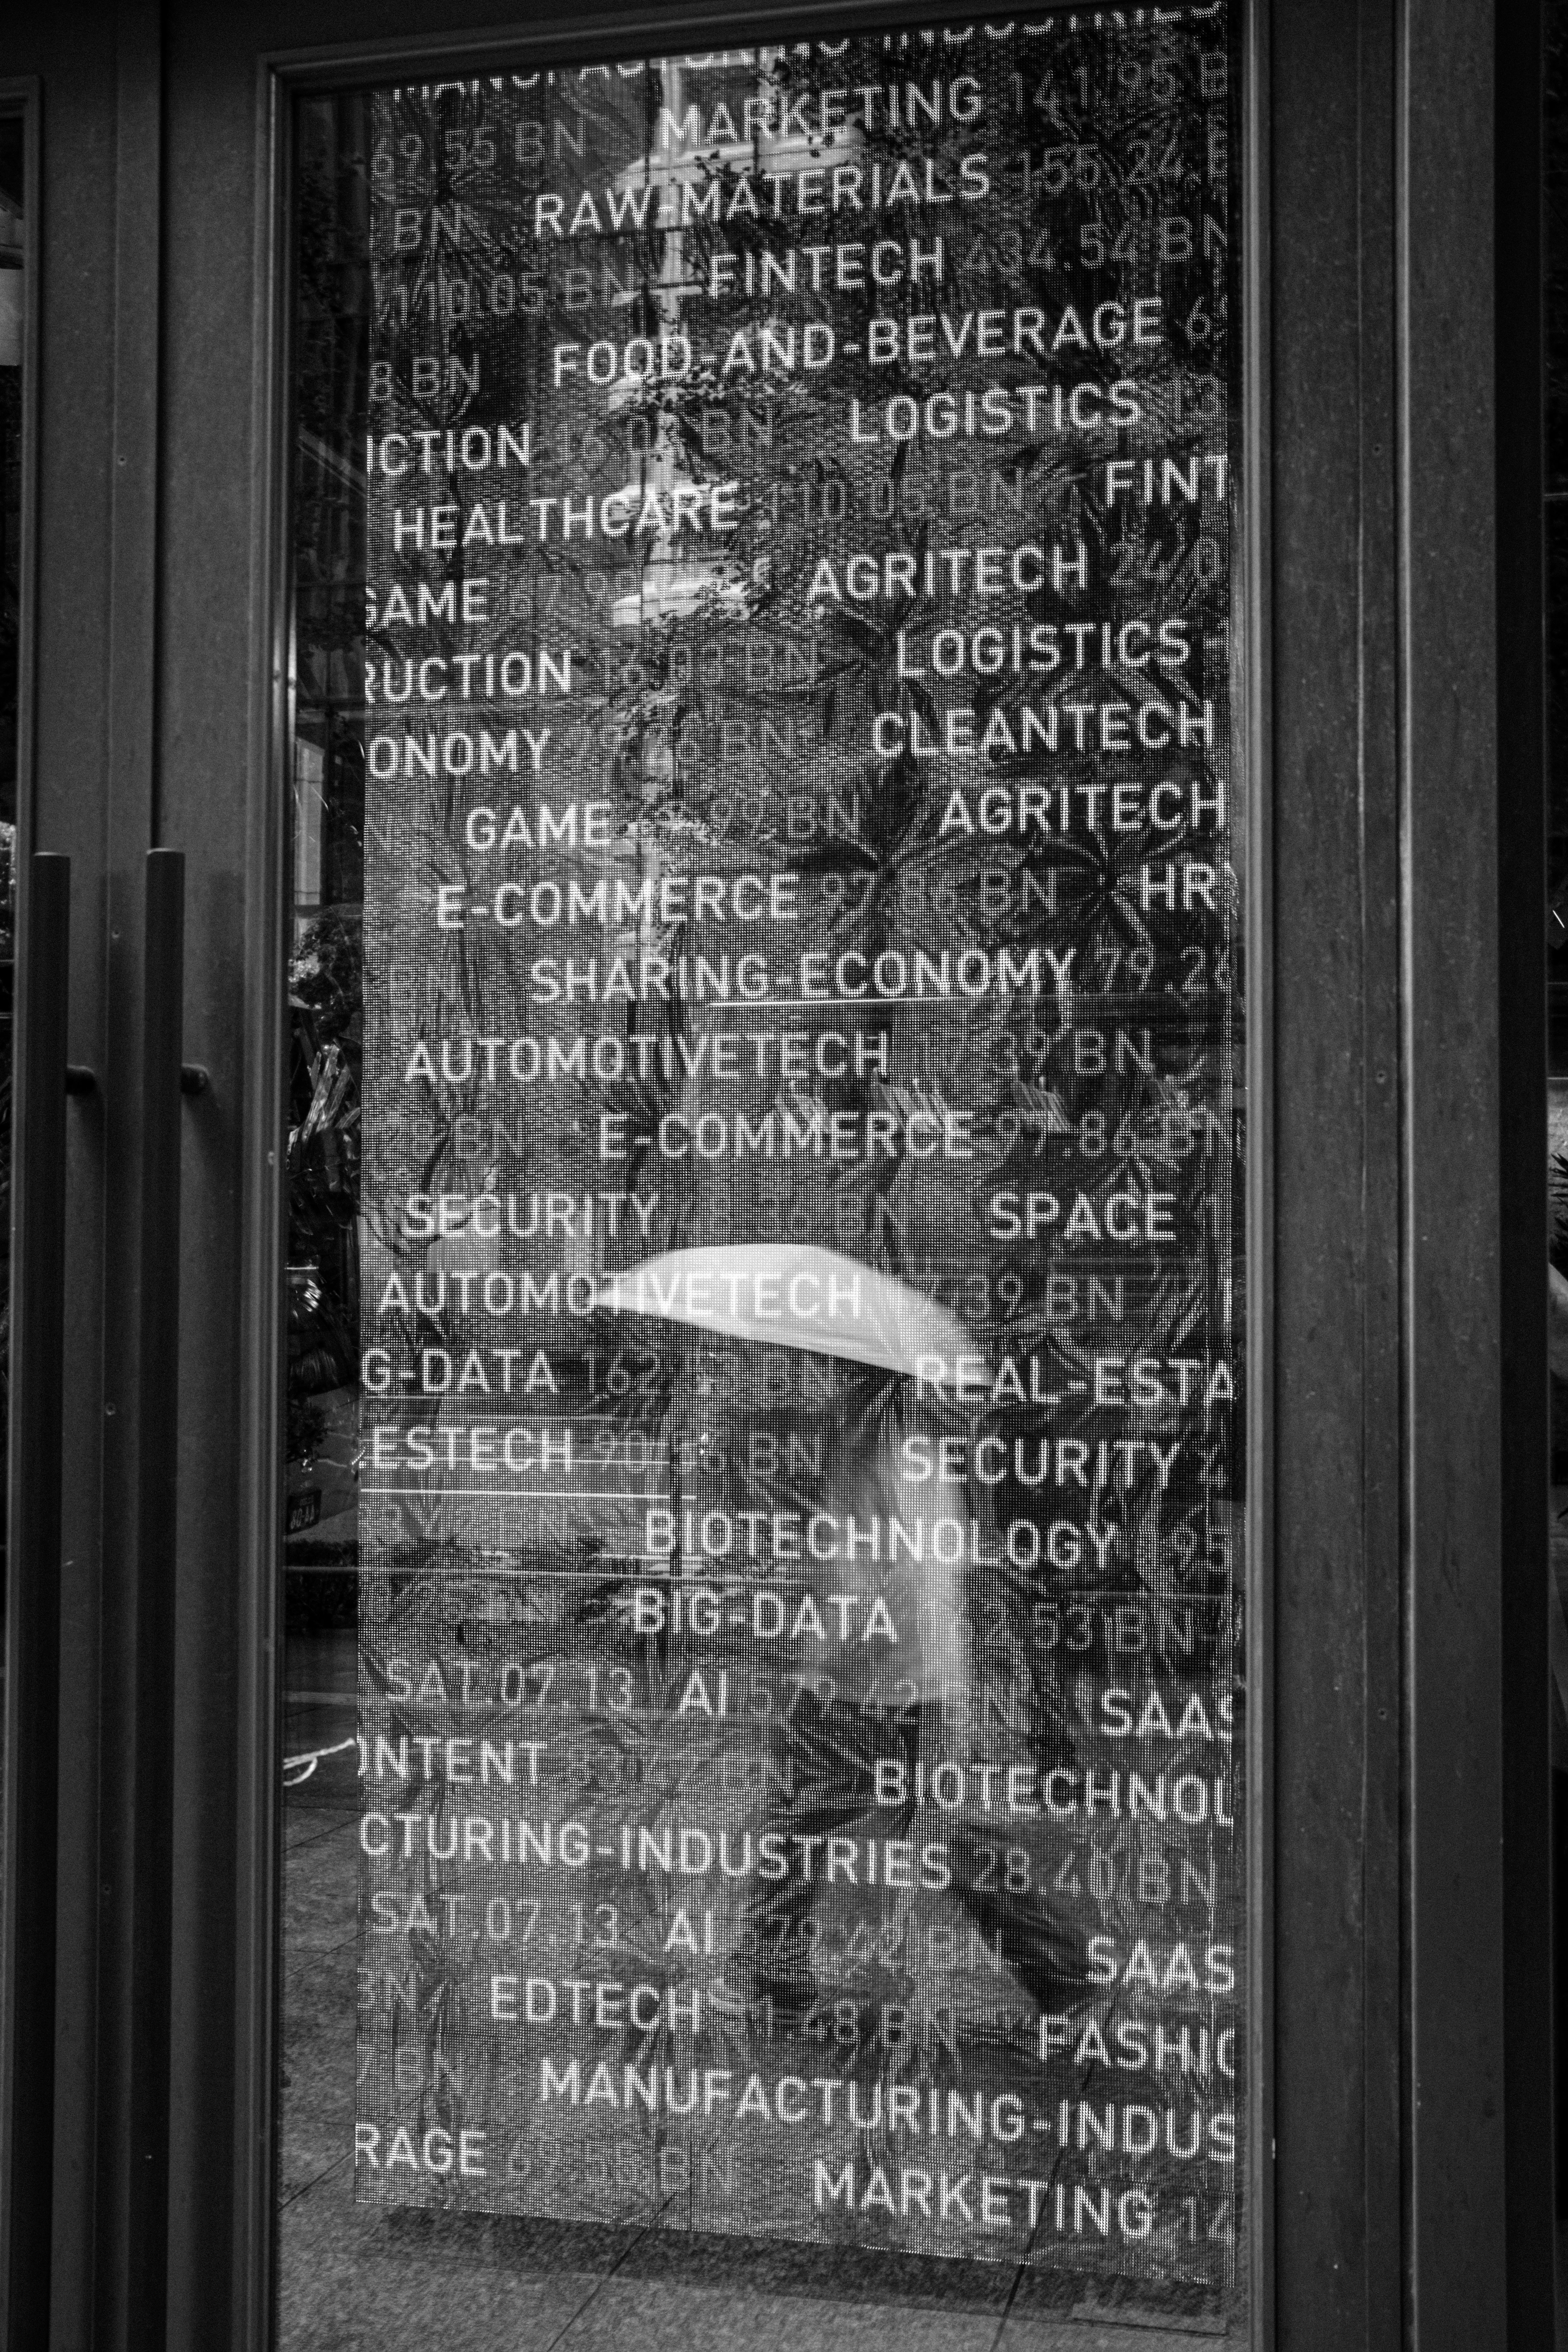 MANUFACTURING INDUSTRIES
69.55 BN MARKETING 141.95 B
BN RAW-MATERIALS 155.24 B
110.05 BN FINTECH 434.54 BN
8 BN FOOD-AND-BEVERAGE 6
LOGISTICS
UCTION BN
HEALTHCARE 110.05 BN FINT
GAME AGRITECH
RUCTION BN LOGISTICS
ONOMY BN CLEANTECH
GAME BN AGRITECH
E-COMMERCE 97.86 BN HR
SHARING-ECONOMY 79.26
AUTOMOTIVETECH 39 BN
BN E-COMMERCE 97.86 BN
SECURITY BN SPACE
AUTOMOTIVETECH 39 BN
G-DATA 162 REAL-ESTA
ESTECH BN SECURITY
BIOTECHNOLOGY
BIG-DATA 2.53 BN
SAT.07.13 AI 572.42 BN SAAS
ONTENT BIOTECHNOL
CTURING-INDUSTRIES 28.40 BN
SAT.07.13 AI 72.42 BN SAAS
EDTECH 1.48 BN FASHIO
BN MANUFACTURING-INDUS
RAGE 69.55 BN MARKETING 14